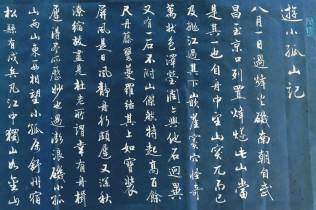 遊小孤山記
八月一日過烽火磯南朝自武
昌至京口列置烽燧此山當
是其一也自舟中望山突兀而已
及拋江過其下嵌巖竇穴怪奇
萬狀色澤瑩潤與他石迥異
又有一石不附山傑然特起高百餘
尺丹藤翠蔓羅絡其上如寶裝
屏風是日風靜舟行頗遲又深秋
潦縮故盡見杜老所謂幸有舟楫
遲得盡所歷妙也過澎浪磯小孤
山兩山東西相望小孤屬舒州宿
松縣有戍兵凡江中獨山如金山